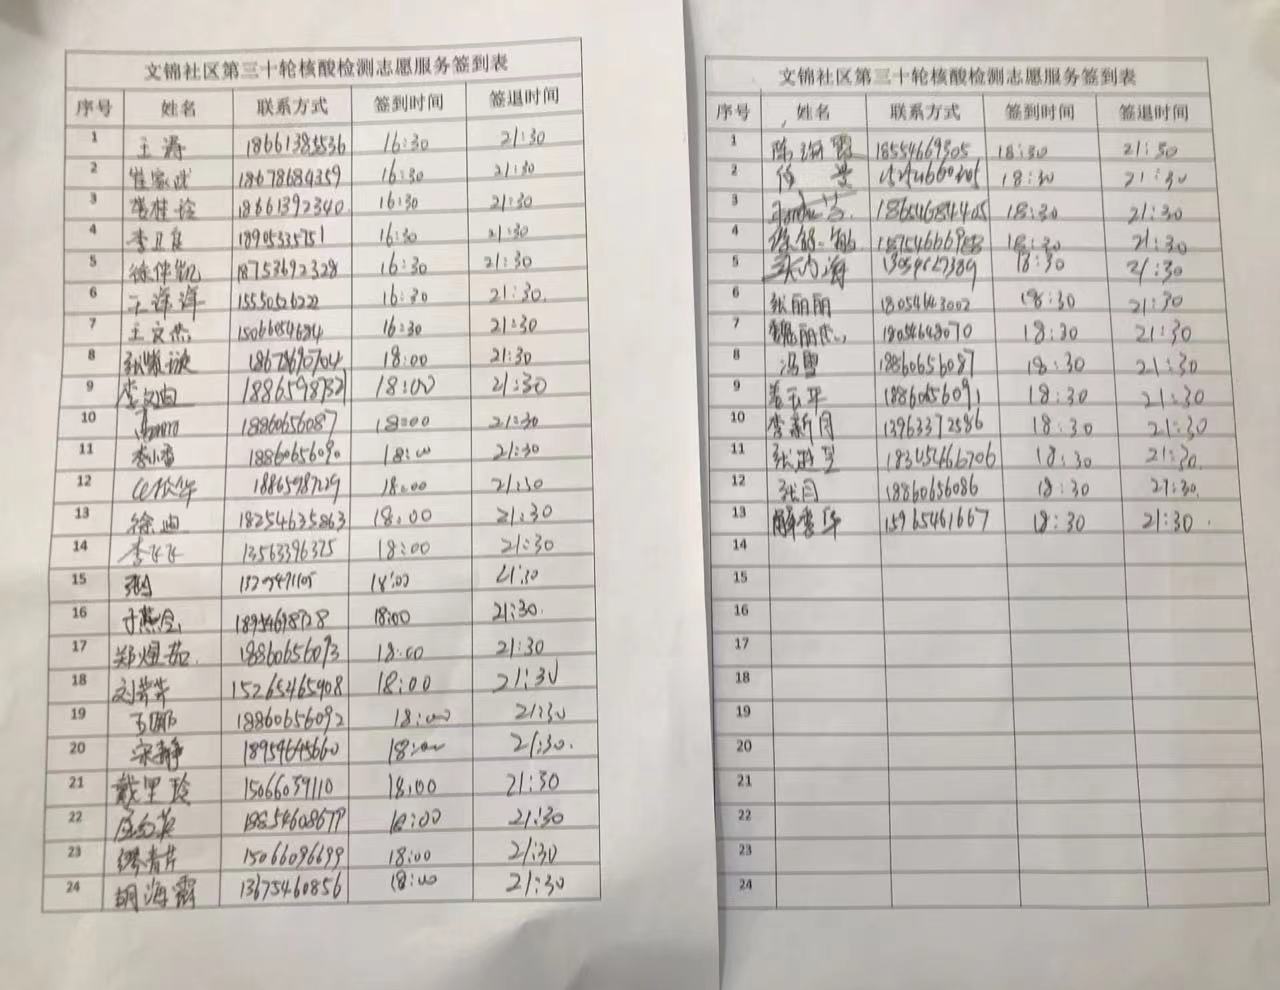 文锦社区第三十轮核酸检测志愿服务签到表
序号 姓名 联系方式 签到时间 签退时间
1 王涛 18661385536 16:30 21:30
2 18678684359 16:30 21:30
3 18661392340 16:30 21:30
4 18905335751 16:30 21:30
5 徐伟凯 18753692328 16:30 21:30
6 王萍萍 15550526222 16:30 21:30
7 王文杰 15066054684 16:30 21:30
8 18678690704 18:00 21:30
9 李文迪 18:00 21:30
10 18860656087 18:00 21:30
11 李小香 18860656090 18:00 21:30
12 18865987129 18:00 21:30
13 徐迪 18254635863 18:00 21:30
14 13563396375 18:00 21:30
15 18:00 21:30
16 于燕令 18954698728 18:00 21:30.
17 郑煜茹. 18860656093 18:00 21:30
18 刘芹芹 15265465908 18:00 21:30
19 18860656092 18:00 21:30
20 宋静 18954645660 18:00 21:30.
21 戴里玲 15066039110 18:00 21:30
22 18854608677 18:00 21:30
23 缪青芹 15066096699 18:00 21:30
24 胡海霞 13675460856 18:00 21:30
文锦社区第三十轮核酸检测志愿服务签到表
序号 姓名 联系方式 签到时间 签退时间
1 陈海霞 18554669505 18:30 21:30
2 18:30 21:30
3 18654684405 18:30 21:30
4 18:30 21:30
5 18:30 21:30
6 张丽丽 18054643002 18:30 21:30
7 18054648070 18:30 21:30
8 冯雪 18860656087 18:30 21:30
9 18860656091 18:30 21:30
10 李新月 13963372586 18:30 21:30
11 18345466706 18:30 21:30.
12 张月 18860656086 18:30 21:30.
13 解雪华 15965461667 18:30 21:30.
14
15
16
17
18
19
20
21
22
23
24